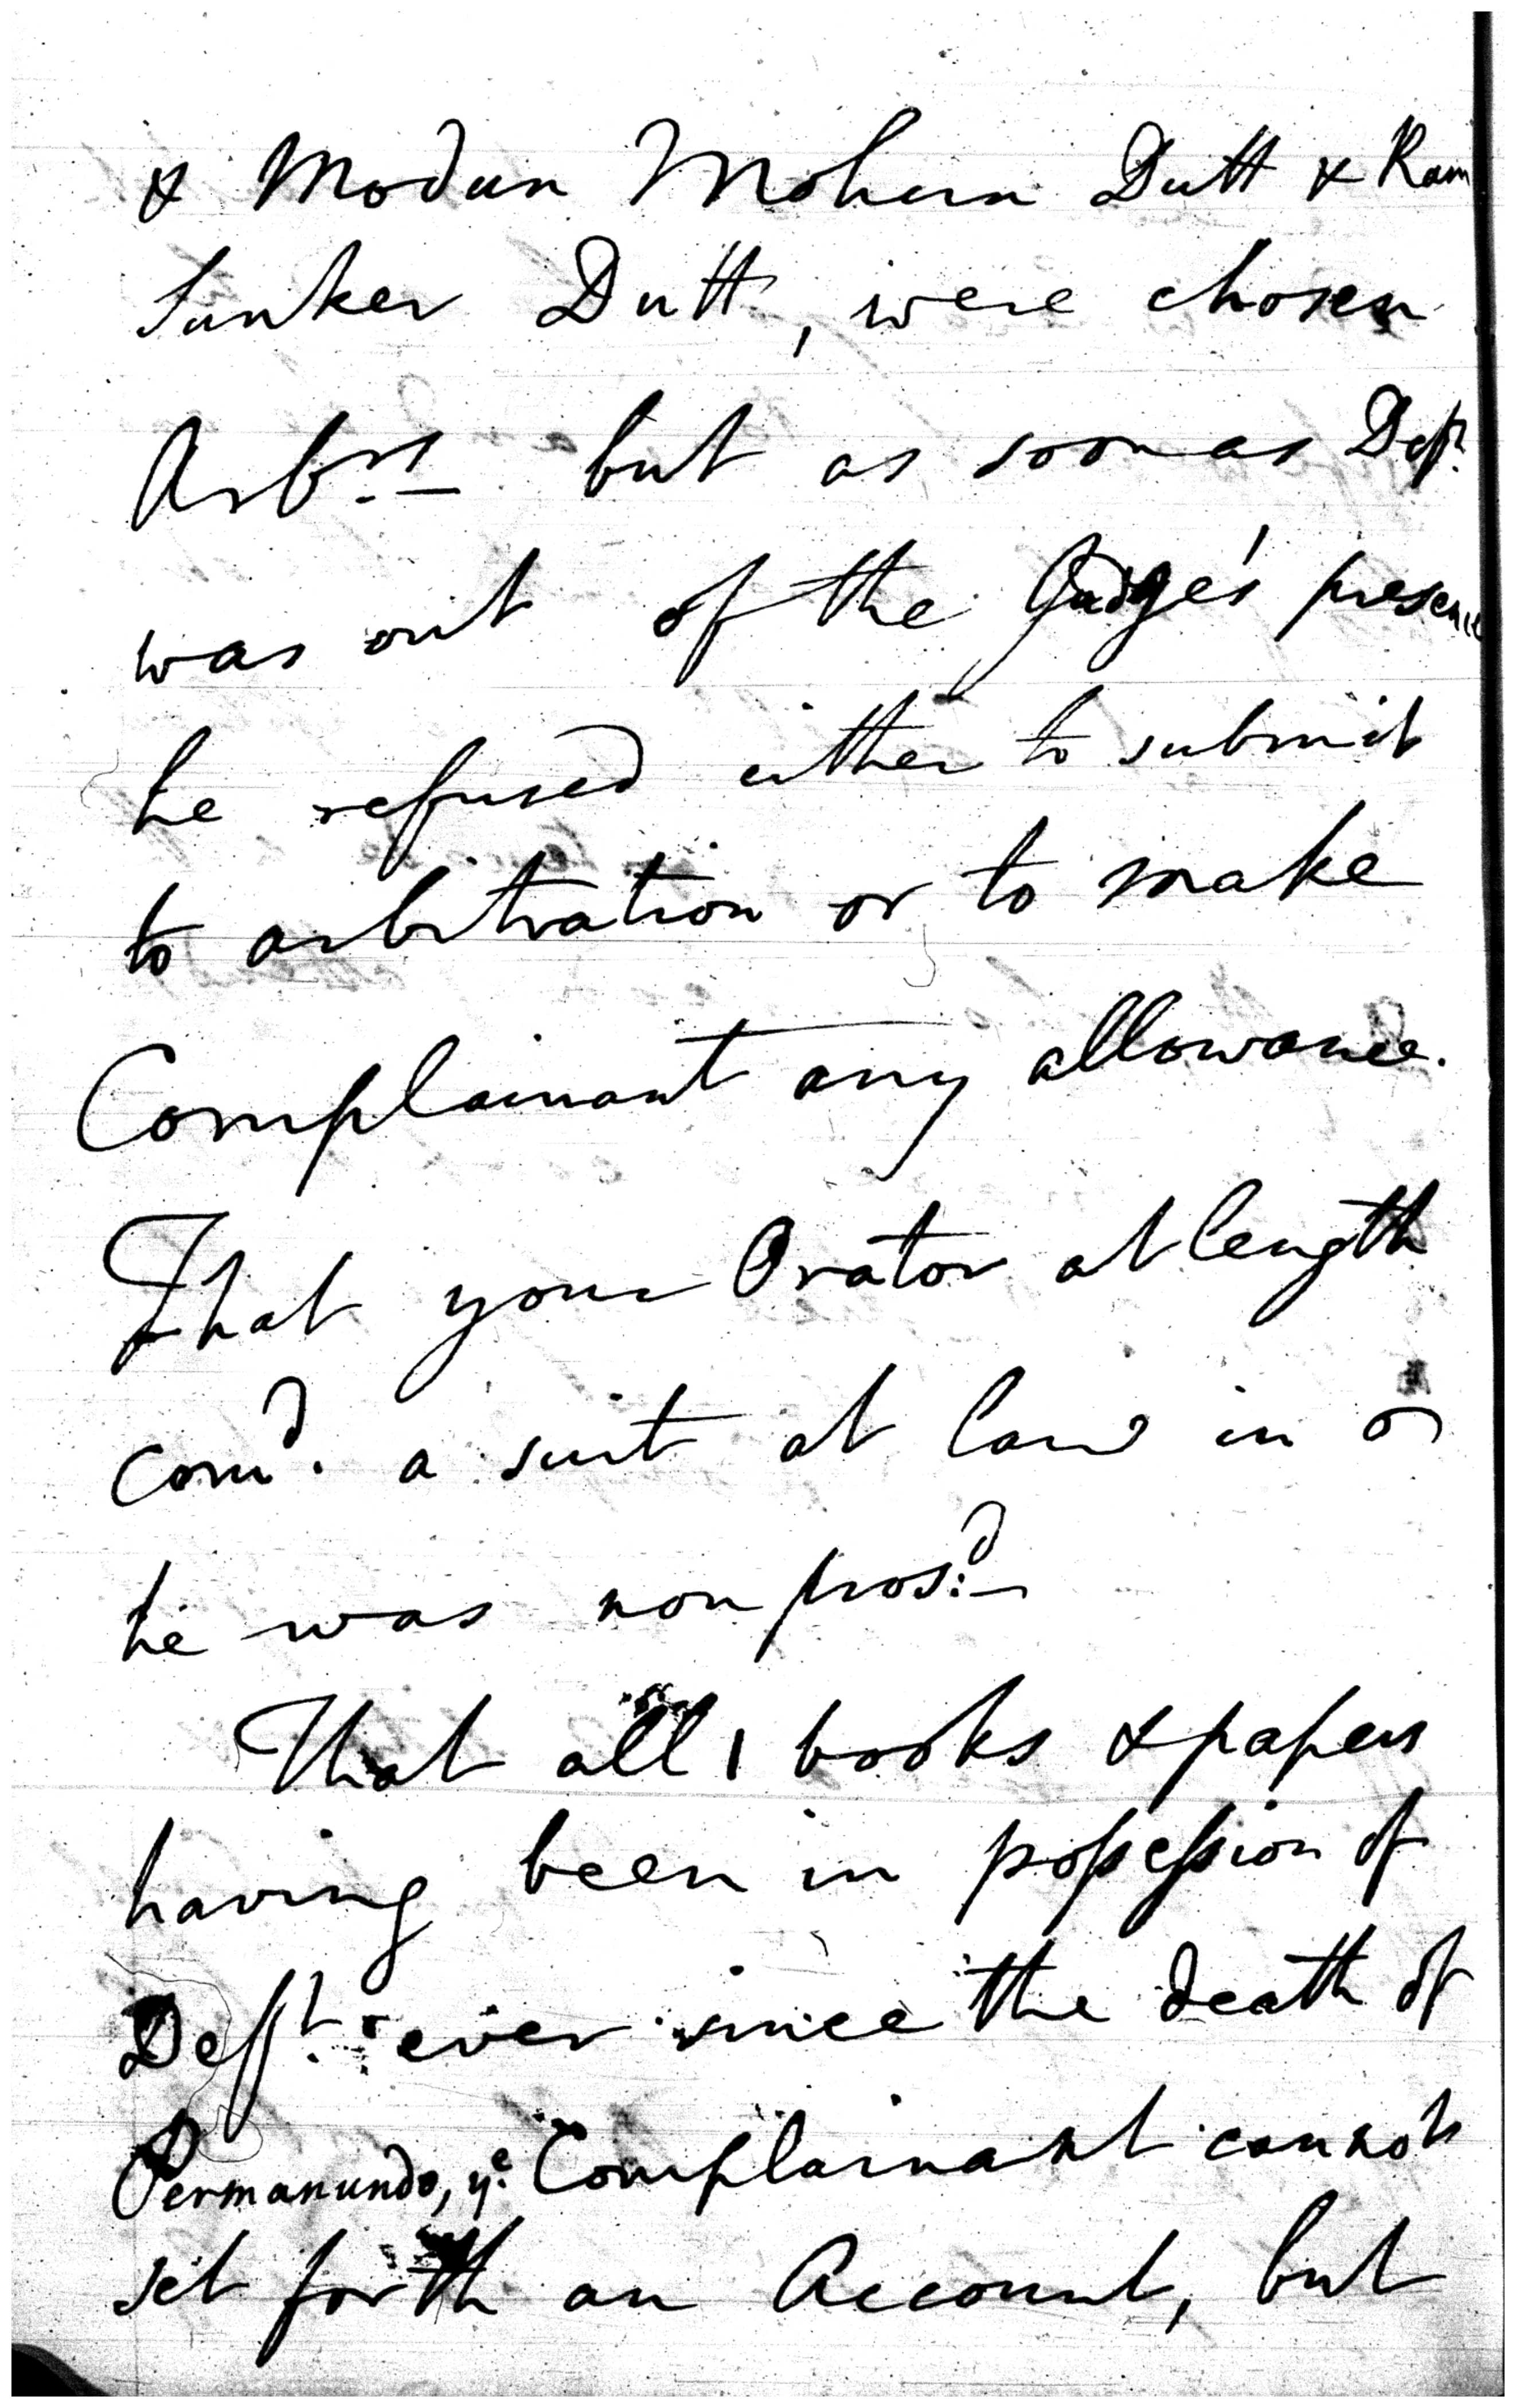 & Modun Mohun Dutt & Ram
Sunker Dutt, were chosen
Arbrs but as soon as Deft.
was out of the Judge's presence
he refused either to submit
to arbitration or to make
Complainant any allowance.
That your Orator at length
comd. a suit at law in
he was non prosd.
That all books & papers
having been in possession of
Deft. ever since the death of
Permanundo, ye. Complainant cannot
set forth an Account, but